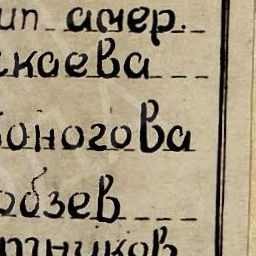 ип. амер.
каева
оногова
обзев
тников